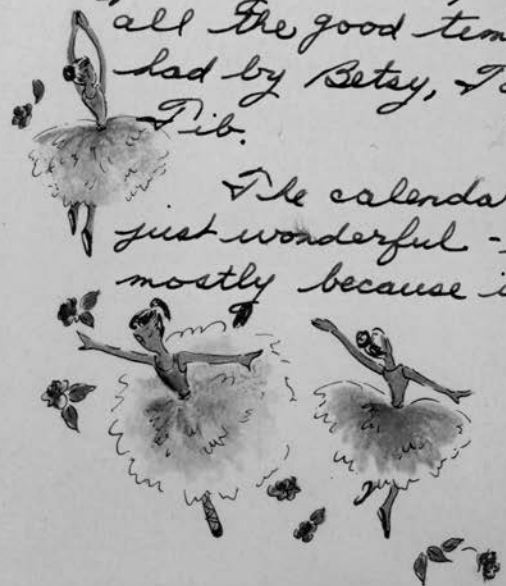 all the good tem
had by Betsy, Ta
Tib.
The calenda
just wonderful -
mostly because i